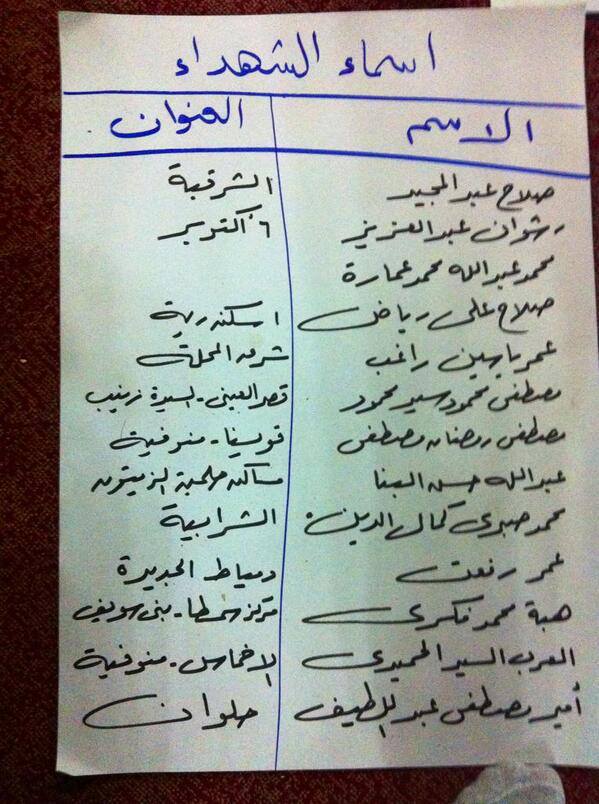 اسماء الشهداء
الاسم العنوان
صلاح عبد المجيد الشرقية
رشوان عبد العزيز ٦ اكتوبر
محمد عبد الله محمد عمارة
صلاح على رياض اسكندرية
عمر ياسين راغب شرق المحلة
مصطفى محمود سير محمود قصر العينى - السيدة زينب
مصطفى رمضان مصطفى قويسنا - منوفية
عبد الله حسن البنا مساكن حلمية الزيتون
محمد صبرى كمال الدين الشرابية
عمر رفعت دمياط الجديدة
هبة محمد فكرى مركز سمسطا - بنى سويف
العرب السيد الحميدى الاخماس - منوفية
أمير مصطفى عبد اللطيف حلوان